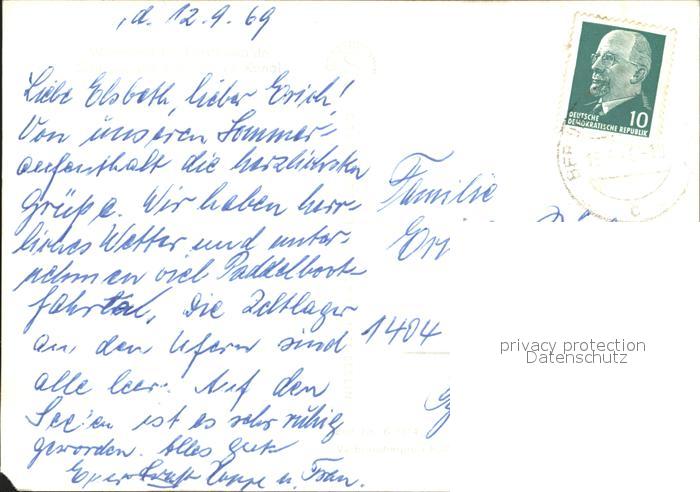 ,d. 12.9.69
Liebe Elsbeth, lieber Erich!
Von unseren Sommer-
aufenthalt die herzlichsten
Grüße. Wir haben herr-
liches Wetter und unter-
nehmen viel Paddelboot-
fahrten, die Zeltlager
an den Ufern sind
alle leer. Auf den
Seen ist es sehr ruhig
geworden. Alles gute
Euer Hoppe u. Frau.
DEUTSCHE
DEMOKRATISCHE REPUBLIK
10
BER
Familie
1404
privacy protection
Datenschutz